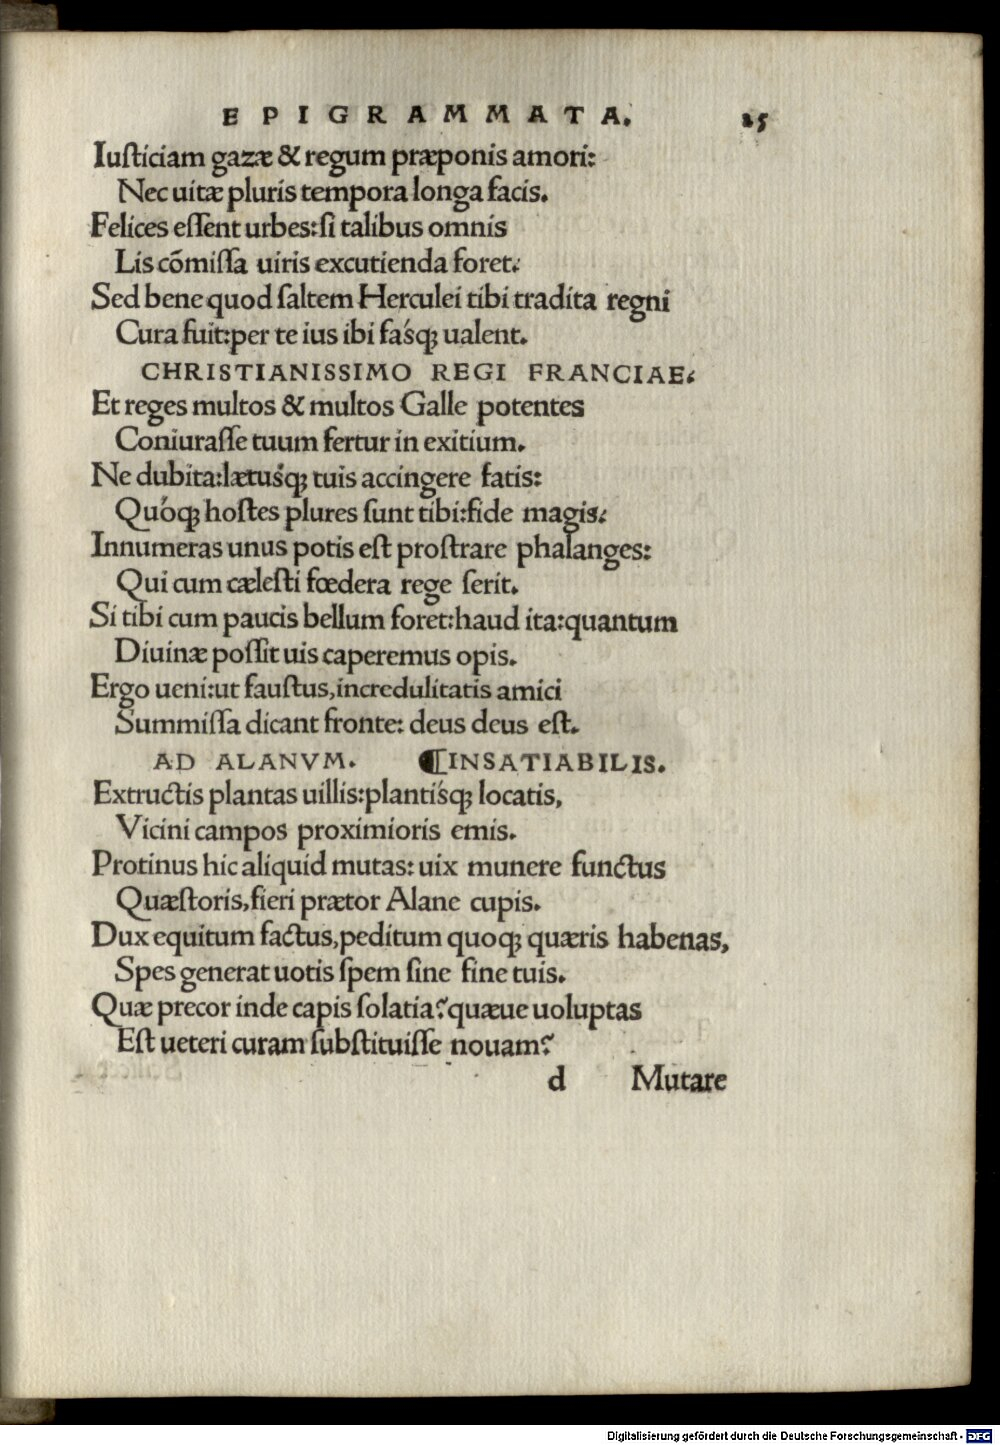 EPIGRAMMATA. 25
Iuſticiam gazæ & regum præponis amori:
Nec uitæ pluris tempora longa facis.
Felices eſſent urbes:ſi talibus omnis
Lis cõmiſſa uiris excutienda foret.
Sed bene quod ſaltem Herculei tibi tradita regni
Cura fuit:per te ius ibi faśqꝫ ualent.
CHRISTIANISSIMO REGI FRANCIAE.
Et reges multos & multos Galle potentes
Coniuraſſe tuum fertur in exitium.
Ne dubita:lætuśqꝫ tuis accingere fatis:
Quóqꝫ hoſtes plures ſunt tibi:fide magis.
Innumeras unus potis eſt proſtrare phalanges:
Qui cum cæleſti fœdera rege ſerit.
Si tibi cum paucis bellum foret:haud ita:quantum
Diuinæ poſſit uis caperemus opis.
Ergo ueni:ut fauſtus,incredulitatis amici
Summiſſa dicant fronte: deus deus eſt.
AD ALANVM. ¶INSATIABILIS.
Extructis plantas uillis:plantiśqꝫ locatis,
Vicini campos proximioris emis.
Protinus hic aliquid mutas: uix munere functus
Quæſtoris,fieri prætor Alane cupis.
Dux equitum factus,peditum quoqꝫ quæris habenas,
Spes generat uotis ſpem ſine fine tuis.
Quæ precor inde capis ſolatia?quæue uoluptas
Eſt ueteri curam ſubſtituiſſe nouam?
d Mutare
Digitalisierung gefördert durch die Deutsche Forschungsgemeinschaft - DFG